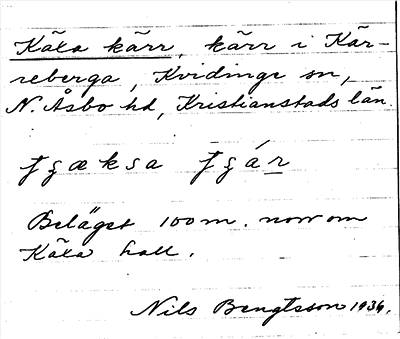 Käxa kärr, kärr i Kär-
reberga, Kvidinge sn,
N. Åsbo hd, Kristianstads län.
ʄʒæksa ʄʒár
Beläget 100 m. norr om
Käxa hall.
Nils Bengtsson 1936.